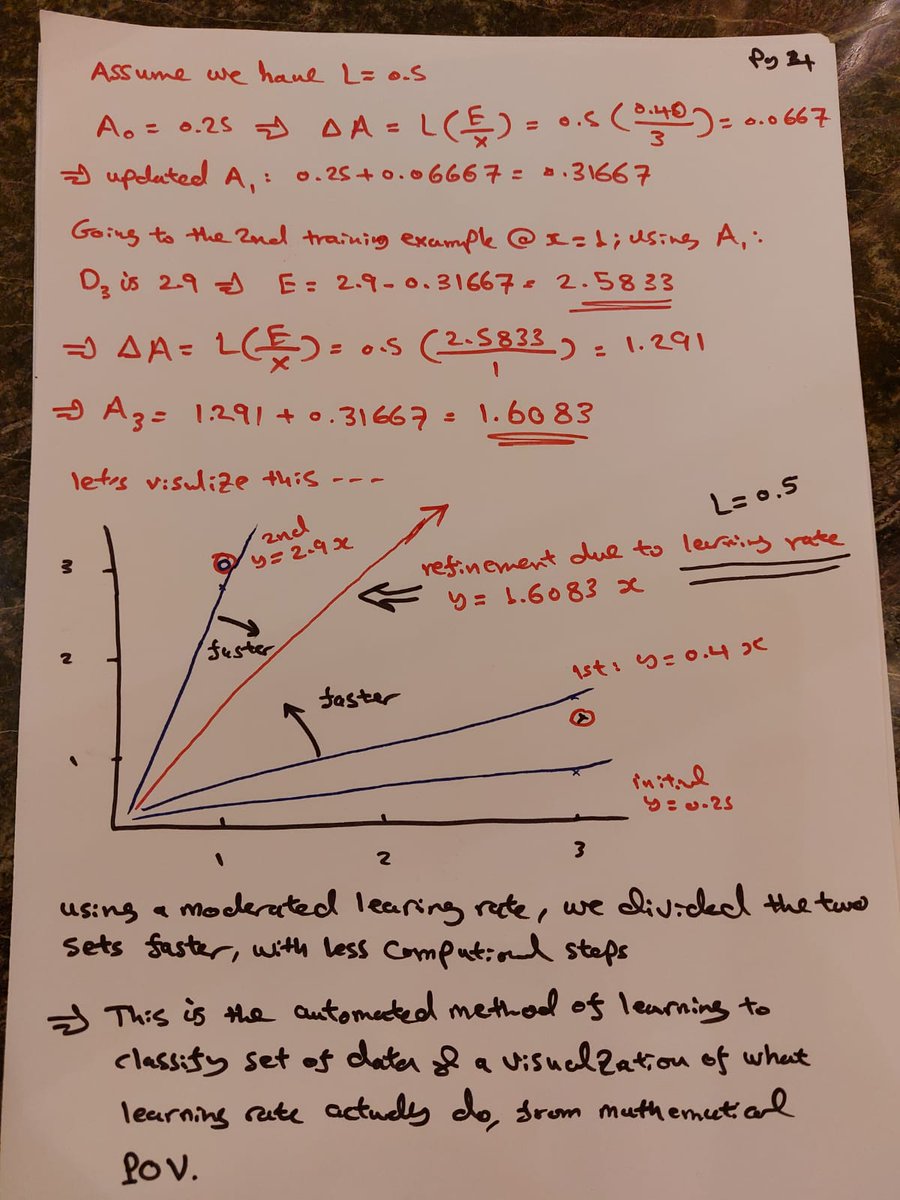 Pg 21
Assume we have L = 0.5
A₀ = 0.25 ⇒ ΔA = L(E/x) = 0.5 (0.40/3) = 0.0667
⇒ updated A₁: 0.25 + 0.06667 = 0.31667
Going to the 2nd training example @ x = 1; using A₁:
D₃ is 2.9 ⇒ E = 2.9 - 0.31667 = 2.5833
⇒ ΔA = L(E/x) = 0.5 (2.5833/1) = 1.291
⇒ A₃ = 1.291 + 0.31667 = 1.6083
let's visulize this ---
L = 0.5
2nd
y = 2.9x
3
refinement due to learning rate
y = 1.6083 x
faster
2
1st: y = 0.4x
faster
1
initial
y = 0.25
1 2 3
using a moderated learing rate, we divided the two
sets faster, with less computional steps
⇒ This is the automated method of learning to
classify set of data & a visualzation of what
learning rate actually do, from mathematical
POV.